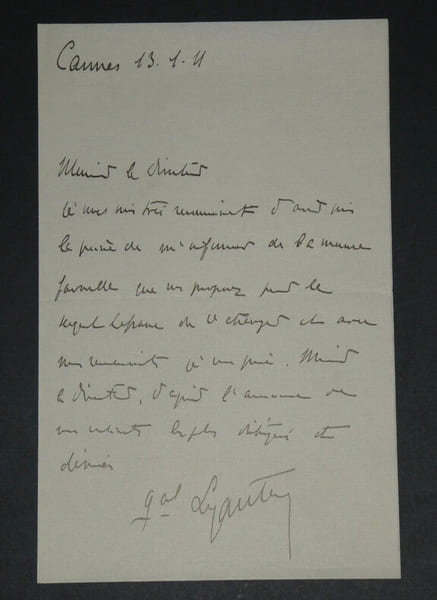 Cannes 13.1.11
Monsieur le Directeur
Je vous suis très reconnaissant d'avoir pris
la peine de m'informer de la mesure
favorable que vous proposez pour le
de ce et avec
mes remerciements je vous prie, Monsieur
le directeur, d'agréer l'assurance de
mes sentiments les plus distingués et
dévoués
gal Lyautey